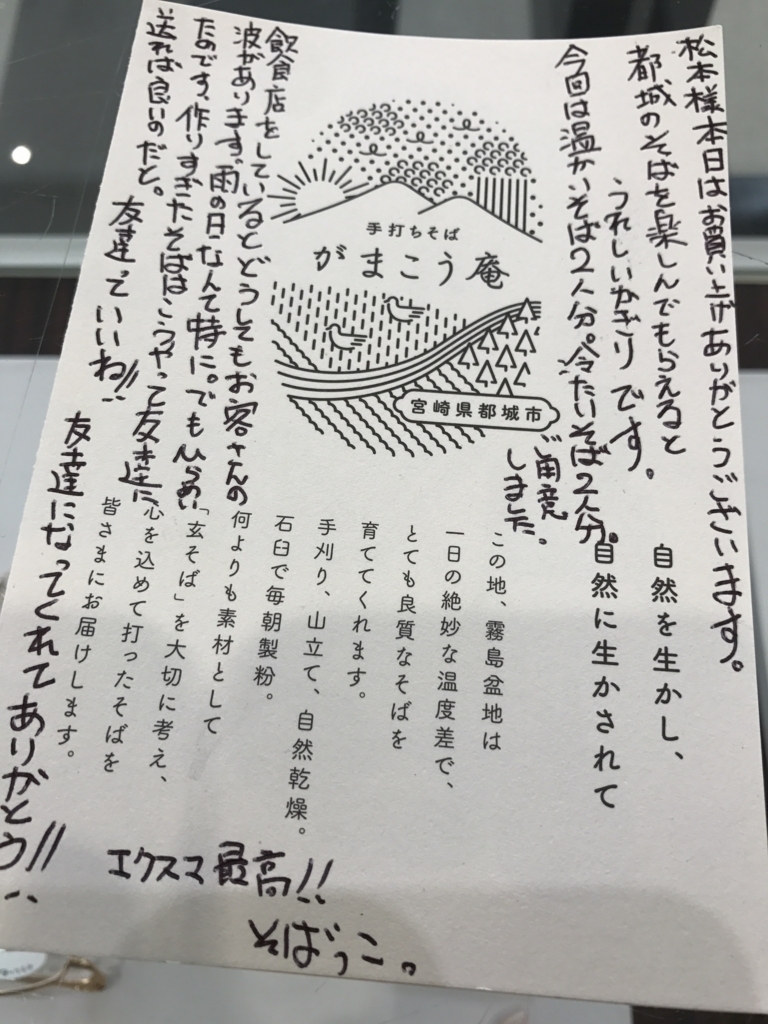 松本様本日はお買い上げありがとうございます。
都城のそばを楽しんでもらえると
うれしいかぎりです。
今回は温かいそば2人分。冷たいそば2人分。
ご用意
しました。
飲食店をしているとどうしてもお客さんの
波があります。雨の日なんて特に。でもひらめい
たのです、作りすぎたそばはこうやって友達に
送れば良いのだと。
友達っていいね!!
友達になってくれてありがとう!!
手打ちそば
がまこう庵
宮崎県都城市
自然を生かし、
自然に生かされて
この地、霧島盆地は
一日の絶妙な温度差で、
とても良質なそばを
育ててくれます。
手刈り、山立て、自然乾燥。
石臼で毎朝製粉。
何よりも素材として
「玄そば」を大切に考え、
心を込めて打ったそばを
皆さまにお届けします。
エクスマ最高!!
そばっこ。